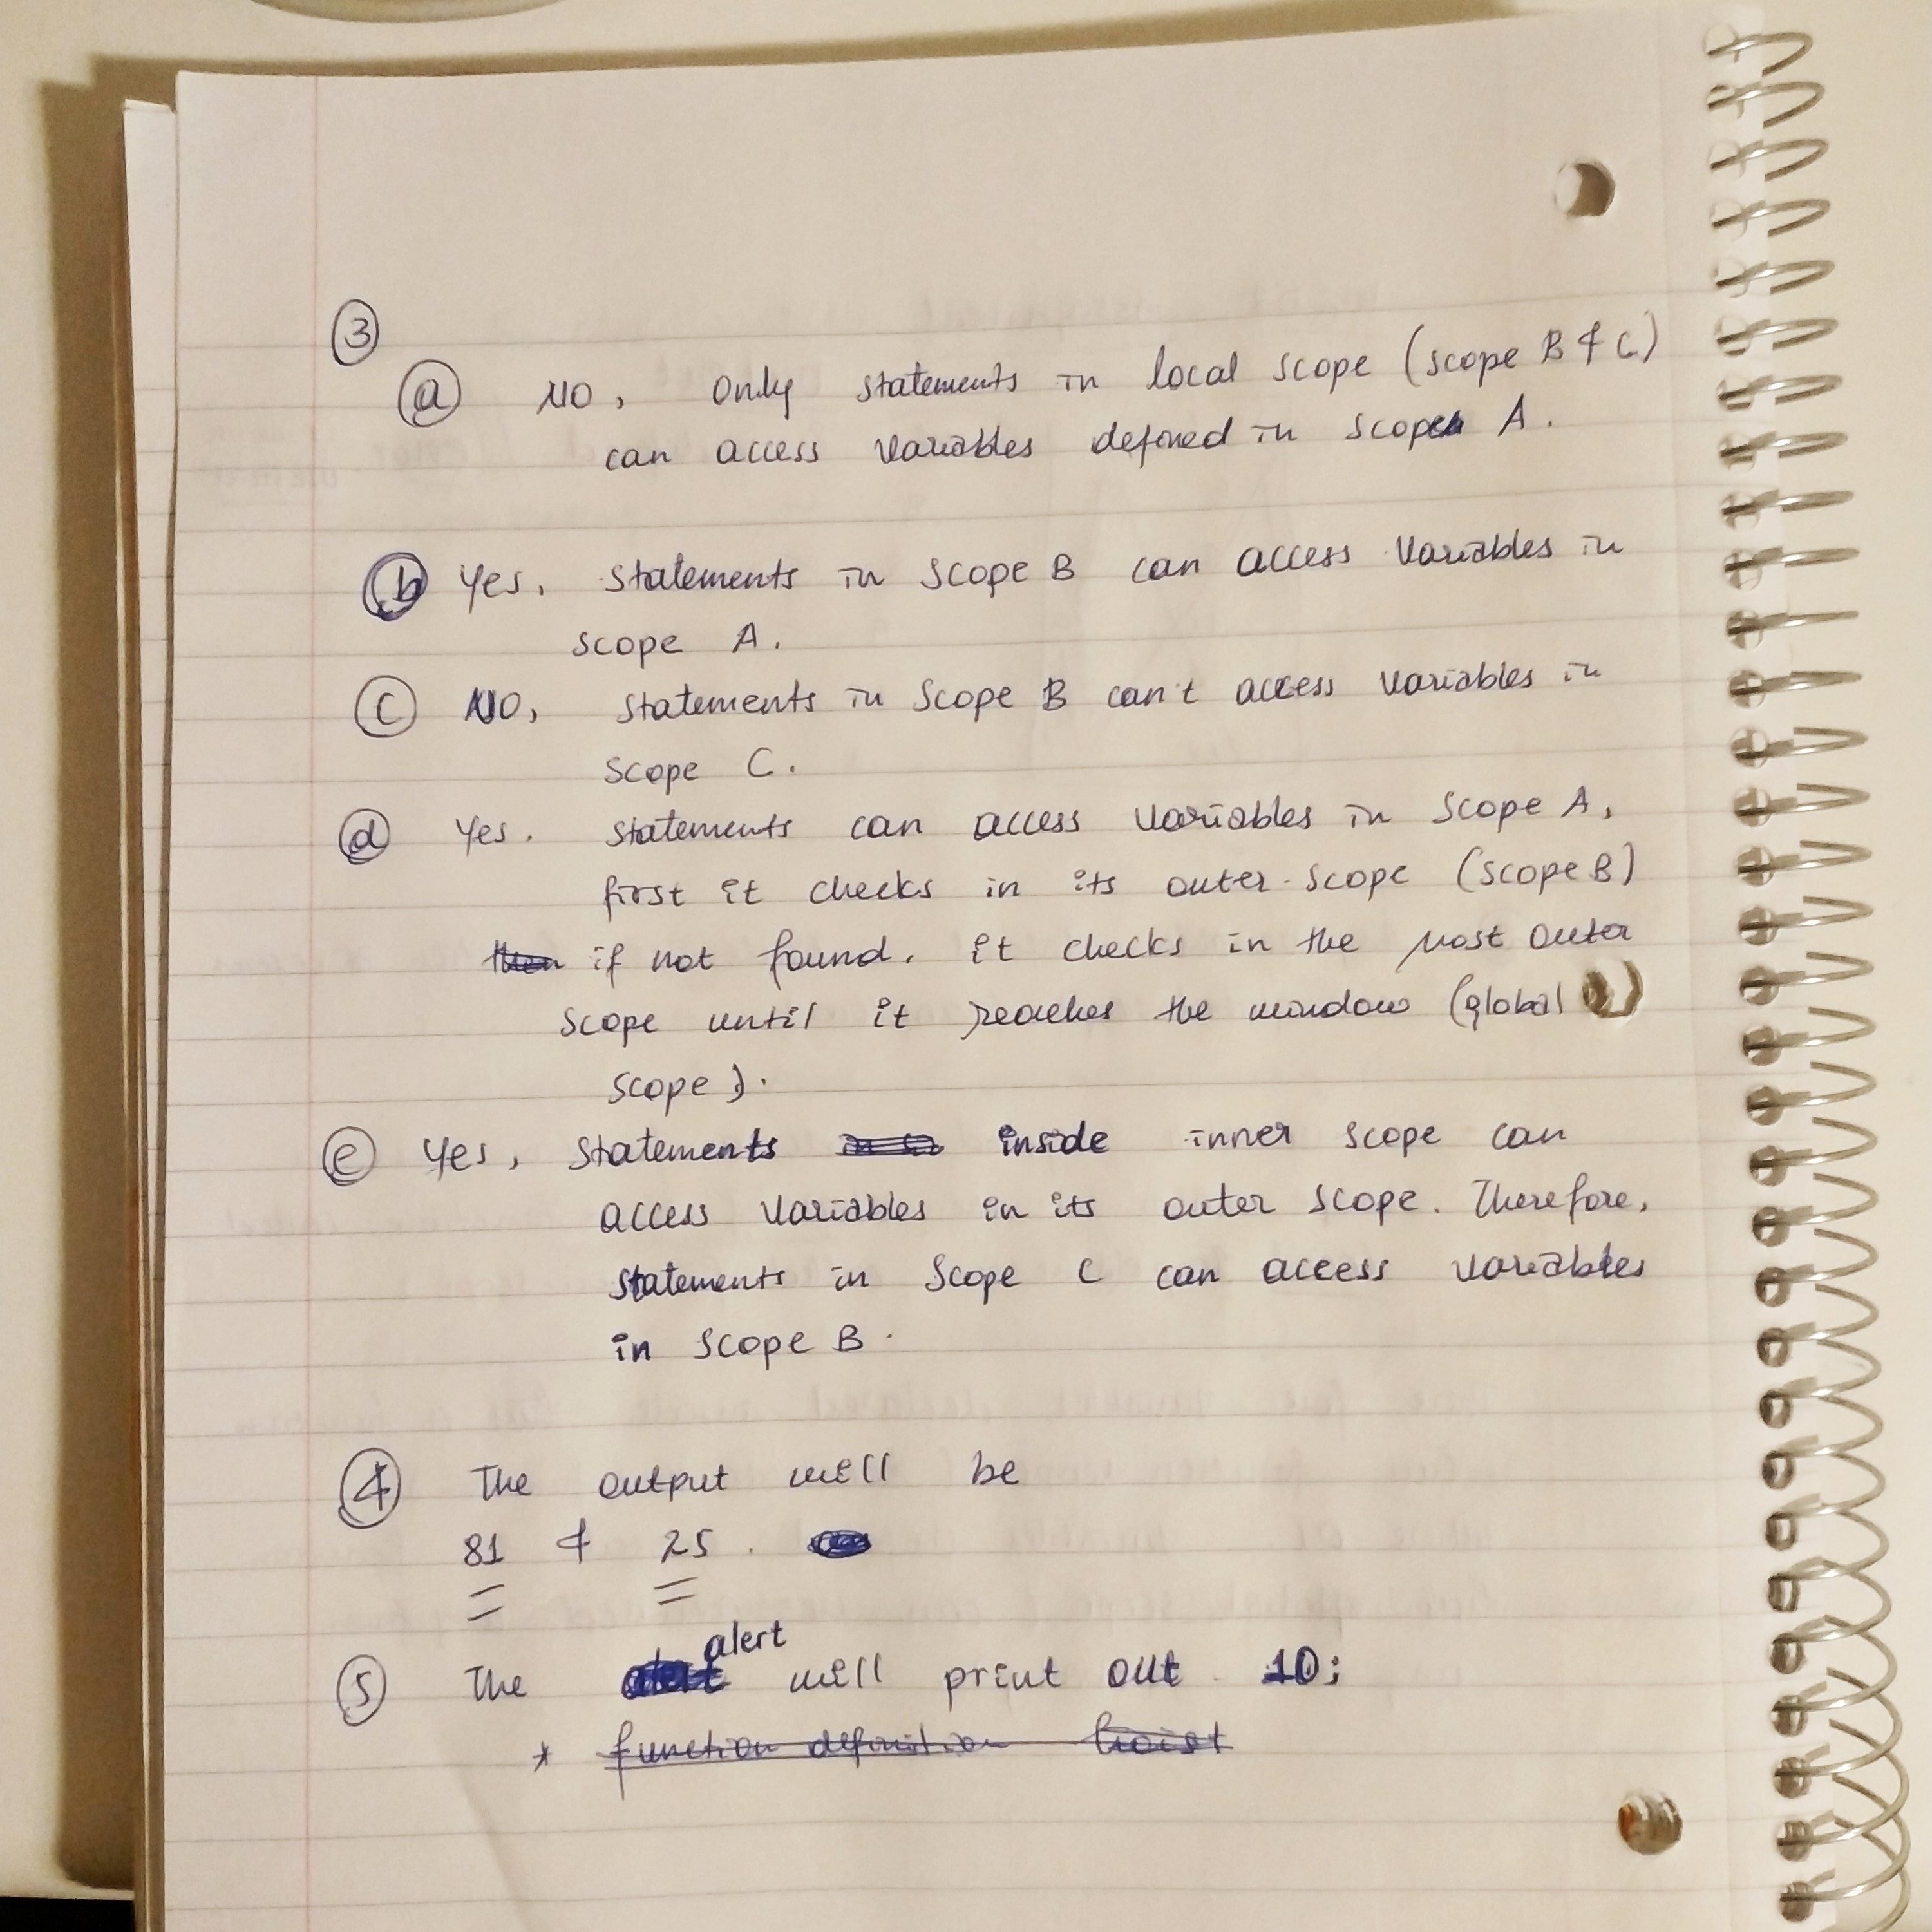 3
a NO, Only statements in local scope (scope B & C)
can access variables defined in scope A.
b Yes. Statements in scope B can access variables in
scope A.
c NO, Statements in scope B can't access variables in
scope C.
d Yes. Statements can access variables in scope A,
first it checks in its outer scope (scope B)
then if not found. it checks in the most outer
scope until it reaches the window (global
scope).
e Yes, Statements inside inner scope can
access variables in its outer scope. Therefore,
statements in scope C can access variables
in scope B.
4 The output will be
81 & 25.
5 The alert will print out 10;
* function definition hoist